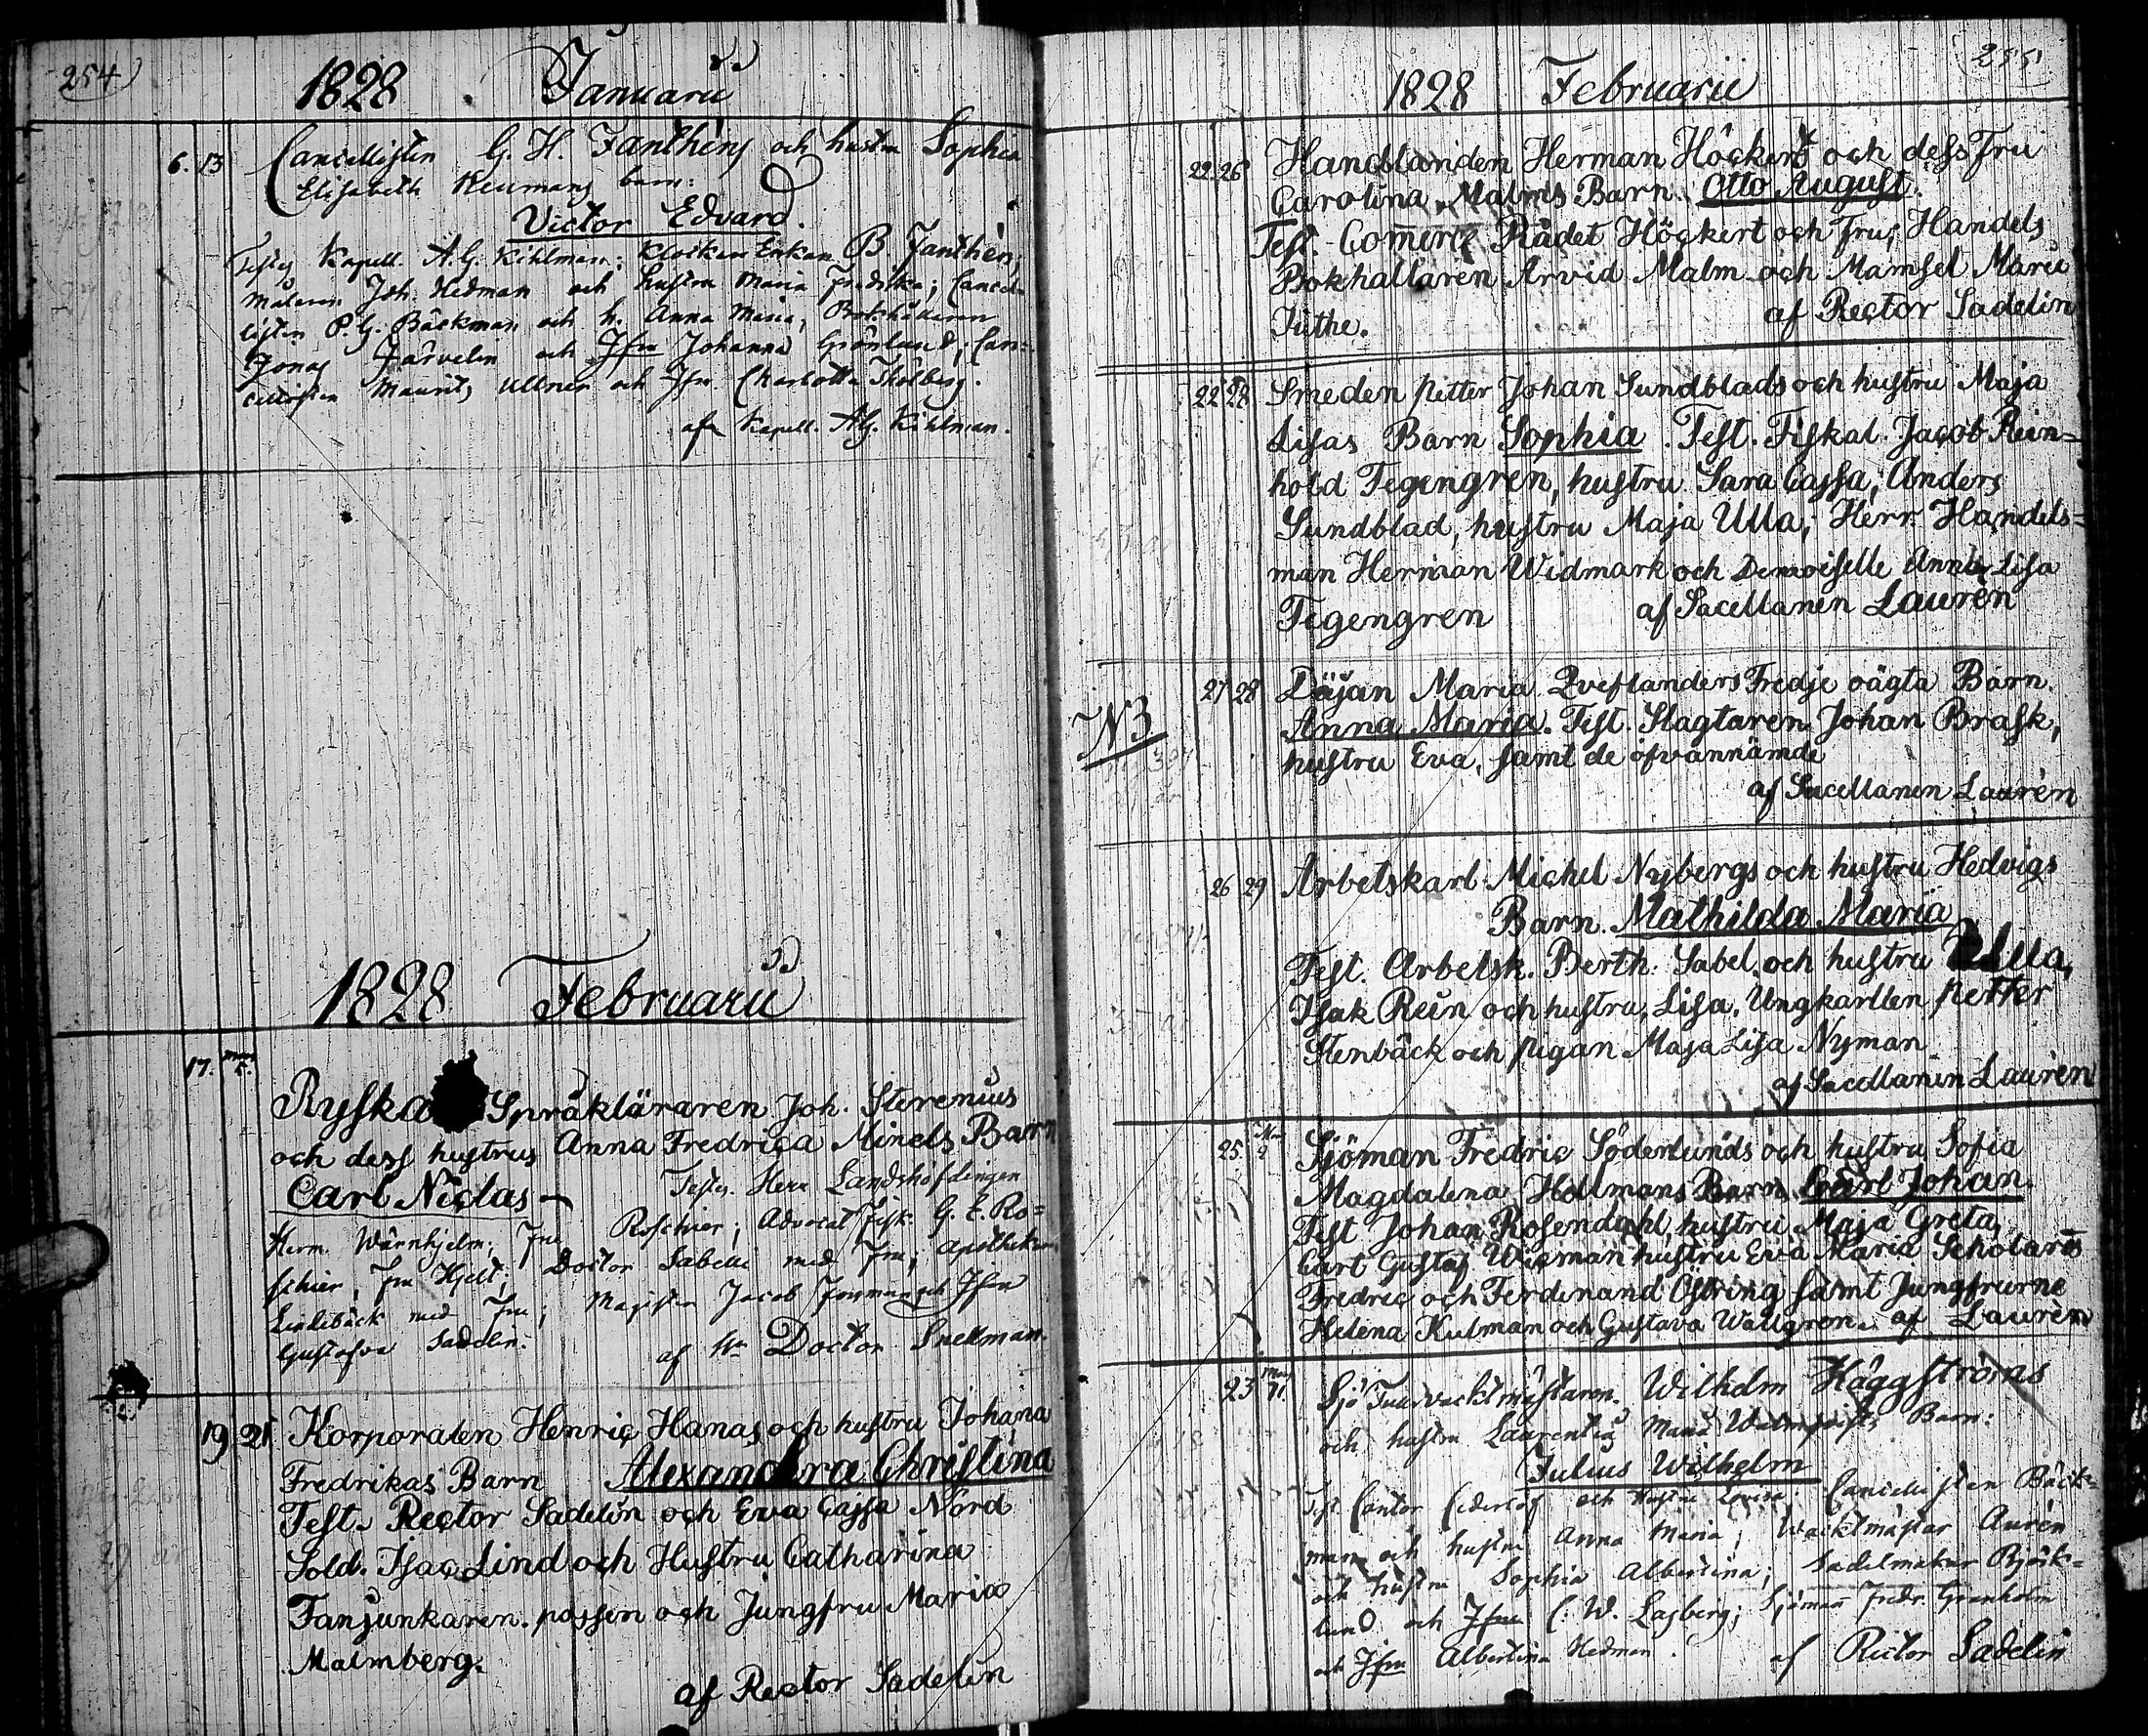 254
1828 Januarii
6. 13 Cancellisten G. H. Janthens och hustru Sophia
Elisabeth Neumans barn:
Victor Edvard.
Testes Kapell. A. G. Kihlman; Klockare Enkan B. Janthèn;
Målaren Joh. Hedman och hustru Maria Fredrika; Cancel-
listen P. G. Bäckman och h. Anna Maria, Bokhållaren
Jonas Järvelin och Jfru Johanna Grönlund; Can=
cellisten Maurits Ullner och Jfr. Charlotta Thölberg.
af Kapell. A G. Kihlman.
1828 Februarii
17. Mars 5.
Ryska Språkläraren Joh. Sterenius
och dess hustrus Anna Fredrica Minels Barn
Carl Niclas Testes. Herr Landshöfdingen
Herm. Wärnhjelm; Fru Roschier; Advocat Fisk. G. E. Ro=
schier, Fru Hjelt; Doctor Sabelli med Fru; Apothekar
Lindebäck med Fru; Magister Jacob Forsman och Jfru
Gustafva Sadelin.
af Hr Doctor Snellman.
19 21 Korporalen Henric Hanas och hustru Johana
Fredrikas Barn Alexandra Christina
Test. Rector Sadelin och Eva Cajsa Nord
Sold. Isac Lind och Hustru Catharina
Fanjunkaren. possen och Jungfru Maria
Malmberg.
af Rector Sadelin
255
1828 Februarii
22 26 Handlanden Herman Höckert och dess Fru
Carolina Malms Barn. Otto August.
Test. Comerce Rådet Höckert och Fru; Handels
Bokhallaren Arvid Malm och Mamsel Maria
Juthe. af Rector Sadelin
22 28 Smeden Petter Johan Sundblads och hustru Maja
Lisas Barn Sophia. Test. Fiskal. Jacob Rein=
hold Tegengren, hustru Sara Cajsa; Anders
Sundblad, hustru Maja Ulla; Herr Handels=
man Herman Widmark och Demoiselle Anna Lisa
Tegengren af Sacellanen Laurèn
N3
27 28 Däjan Maria Qveflanders Fredje oägta Barn.
Anna Maria. Test. Slagtaren Johan Brask,
hustru Eva, samt de ofvannämde
af Sacellanen Laurèn
26 29 Arbetskarl Michel Nybergs och hustru Hedvigs
Barn. Mathilda Maria
Test. Arbetsk. Berth. Sabel och hustru Ulla,
Isak Rein och hustru, Lisa, Ungkarlen Petter
Stenbäck och pigan Maja Lisa Nyman
af Sacellanen Laurèn
25. Mars 2 Sjöman Fredric Söderlunds och hustru Sofia
Magdalena Hollmans Barn Carl Johan.
Test Johan Rosendahl, hustru Maja Greta,
Carl Gustaf Wieman hustru Eva Maria Scholars
Fredric och Ferdinand Ostring samt Jungfrurne
Helena Kulman och Gustava Wallgren. af Laurèn
23 Mars Sjö Tullvacktmästaren Wilhelm Häggströms
och hustru Laurentia Maria Barn:
Julius Wilhelm
Test Cantor och Hustru Lovisa; Cancellisten Bäck=
man och hustru Anna Maria; Wacktmästar Aurèn
och hustru Sophia Albertina; Sadelmakar Björk=
lund och Jfru C. W. Lagberg; Sjöman Fredr. Granholm
och Jfru Albertina Hedman. af Rector Sadelin